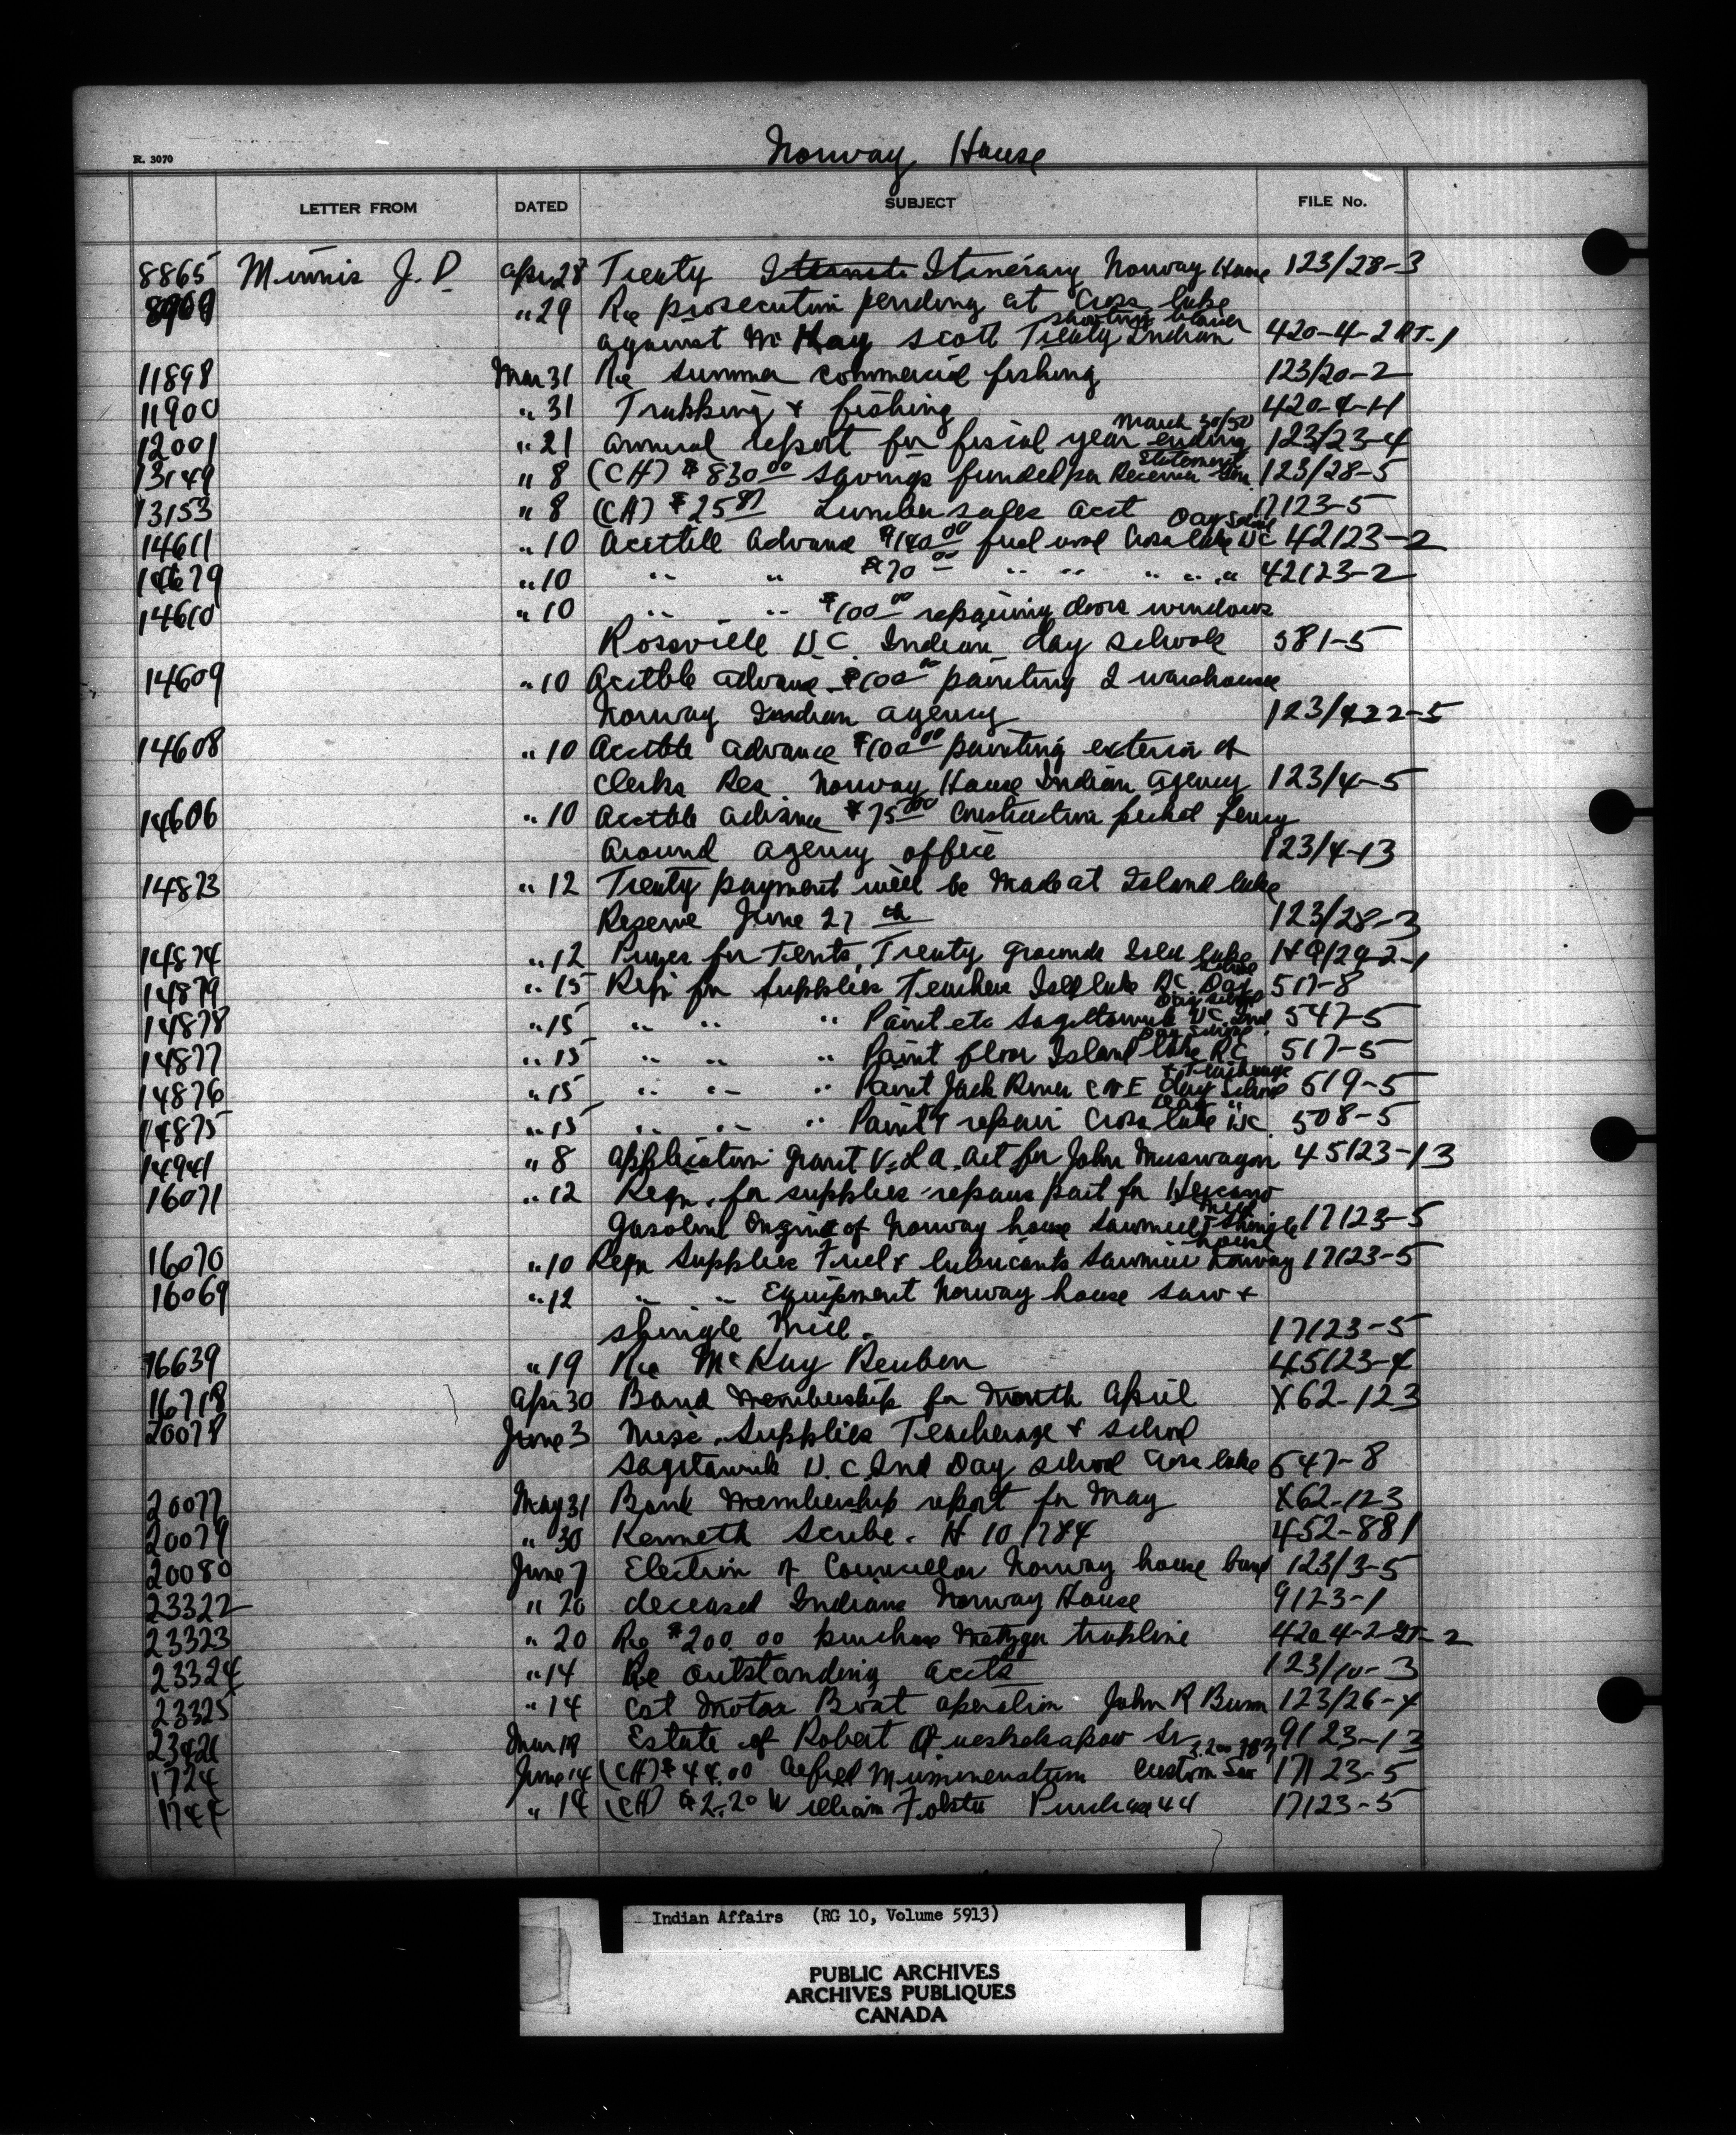 Norway House
R. 3070
LETTER FROM DATED SUBJECT FILE No.
8865 J. D. Apr 28 Treaty Itinerary Norway House 123/28-3
" 29 Re prosecution pending at Cross Lake
shooting
against McKay Scott Treaty Indian 420-4-2 RT-1
11898 Mar 31 Re summer commercial fishing 123/20-2
11900 " 31 Trapping & fishing 420-4-1-1
March 30/50
12001 " 21 annual report for fiscal year ending 123/23-4
Statement
13149 " 8 (CH) $830.00 savings funded per Receiver Gen. 123/28-5
13153 " 8 (CH) $25 Lumber sales acct 17123-5
Day School
14611 " 10 Acctble Advance $140.00 fuel wood Cross Lake UC 42123-2
" 10 " " $70.00 " " " " " 42123-2
14610 " 10 " " $100.00 repairing doors windows
Rossville U.C. Indian day schools 581-5
14609 " 10 Acctble advance $100.00 painting 2 warehouse
Norway Indian agency 123/422-5
14608 " 10 Acctble advance $100.00 painting exterior of
Clerks Res. Norway House Indian Agency 123/4-5
14606 " 10 Acctble advance $75.00 Construction picket fency
Around agency office 123/4-13
14873 " 12 Treaty payment will be made at Island Lake
Reserve June 27 th 123/28-3
14874 " 12 for Tents, Treaty grounds Isld Lake
School
14879 " 15 Reqn for supplies Teachers Isld Lake RC. Day 517-8
Day School
14878 " 15 " " " Paint etc Sagitawak UC. Ind. 547-5
Day School
14877 " 15 " " " Paint floor Island Lake RC 517-5
& Teacherage
14876 " 15 " " " Paint Jack River C of E day School 519-5
Day "
14875 " 15 " " " Paint & repair Cross Lake UC. 508-5
14941 " 8 Application grant V.L.A. Act for John Muswagon 45123-13
16071 " 12 Reqn. for supplies repairs part for Hercano
Mill
Gasoline Engine of Norway house sawmill & Shingle 17123-5
house
16070 " 10 Reqn Supplies Fuel & lubricants Sawmill Norway 17123-5
16069 " 12 " " Equipment Norway house saw &
shingle Mill. 17123-5
16639 " 19 Re McKay Reuben 45123-4
16718 Apr 30 Band Membership for Month April X62-123
20078 June 3 Misc. Supplies Teacherage & school
Sagitawak U.C. Ind Day school Cross Lake 547-8
20077 May 31 Band Membership report for May X62-123
20079 " 30 Kenneth Scribe. H 101784 452-881
20080 June 7 Election of Councillor Norway house band 123/3-5
23322 " 20 deceased Indians Norway House 9123-1
23323 " 20 Re $200.00 purchase trapline
23324 " 14 Re outstanding accts 123/10-3
23325 " 14 Cst Motor Boat operation John R Bunn 123/26-4
Estate of Robert Queskekapow Sr 9123-13
1724 June 14 (CH) $44.00 Alfred Custom Saw 17123-5
" 14 (CH) William Folster Purchase 17123-5
Indian Affairs (RG 10, Volume 5913)
PUBLIC ARCHIVES
ARCHIVES PUBLIQUES
CANADA